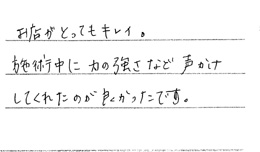 お店がとってもキレイ。
施術中に力の強さなど声かけ
してくれたのが良くかったです。